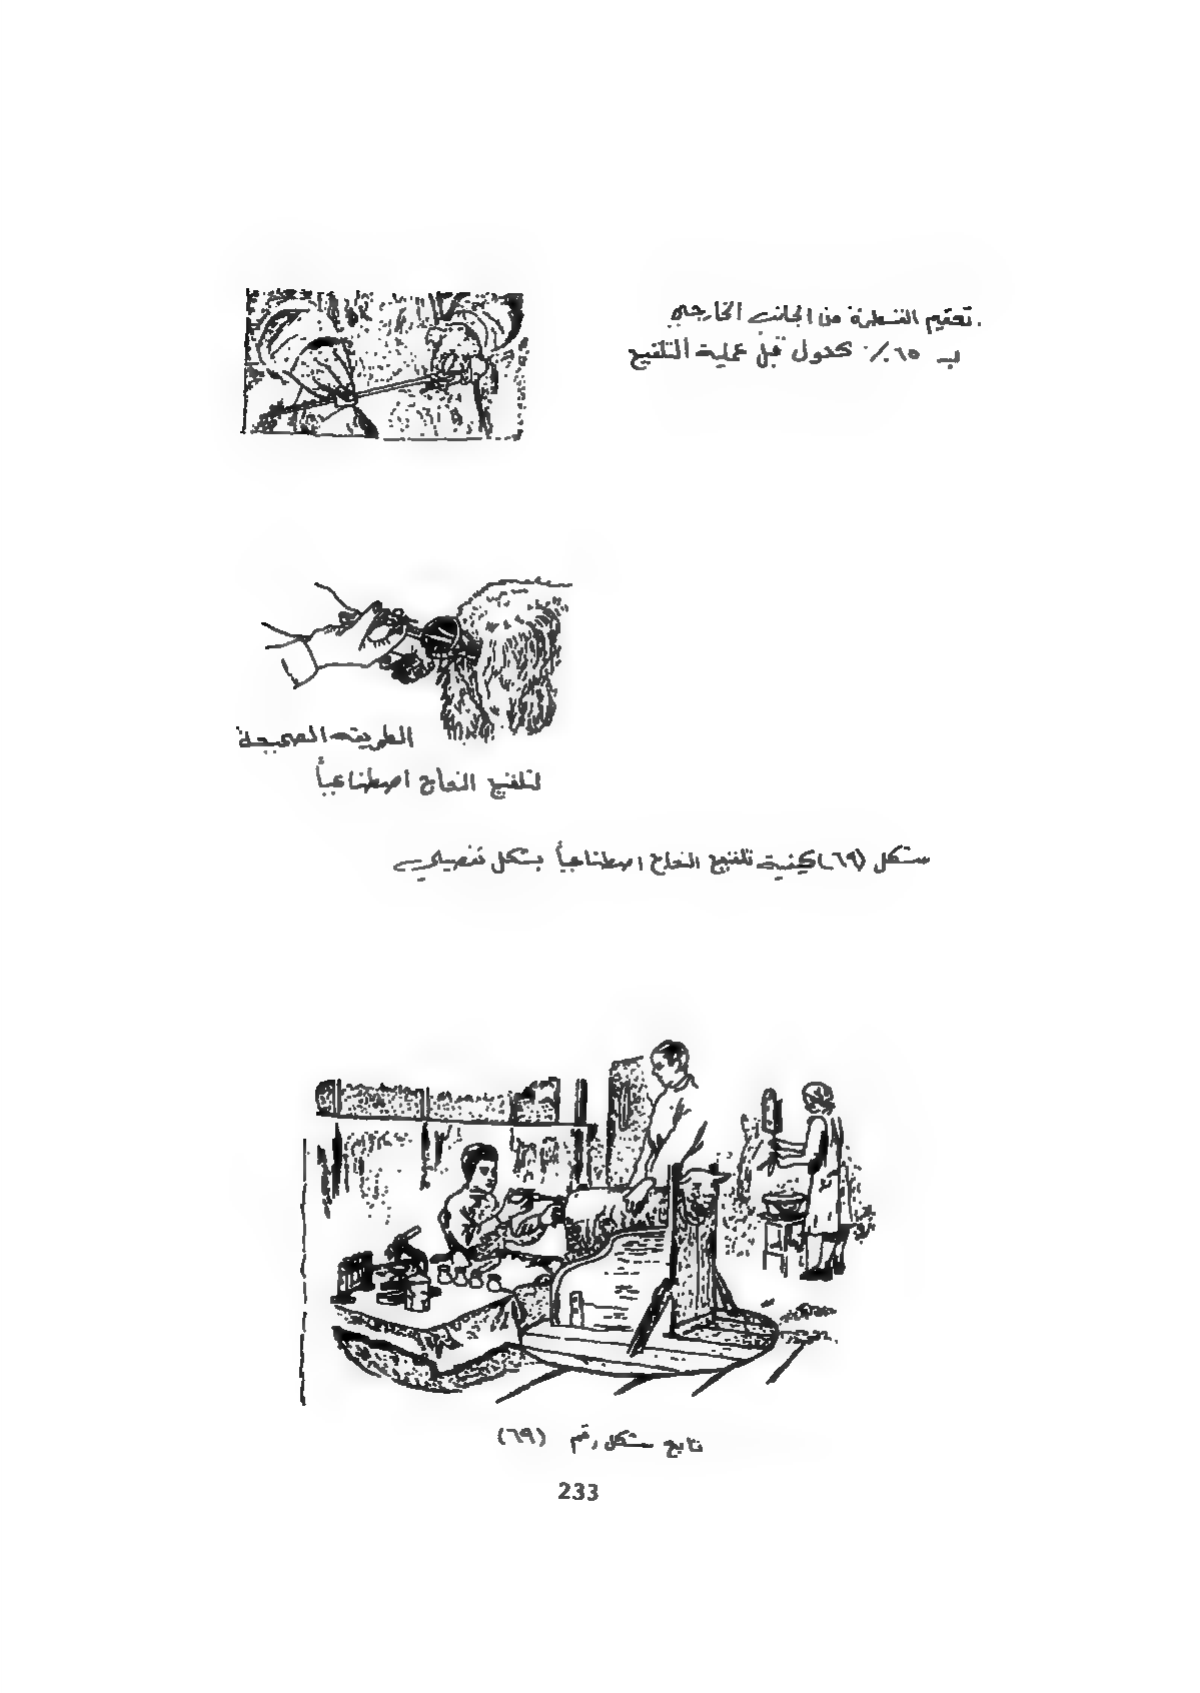 تعقيم القسطرة من الجانب الخارجي.
بـ ٦٥٪ كحول قبل عملية التلقيح
الطريقه الصحيحة
لتلقيح النعاج اصطناعياً
شكل (٦٩) كيفية تلقيح النعاج اصطناعياً بشكل تفصيلي
تابع شكل رقم (٦٩)
233